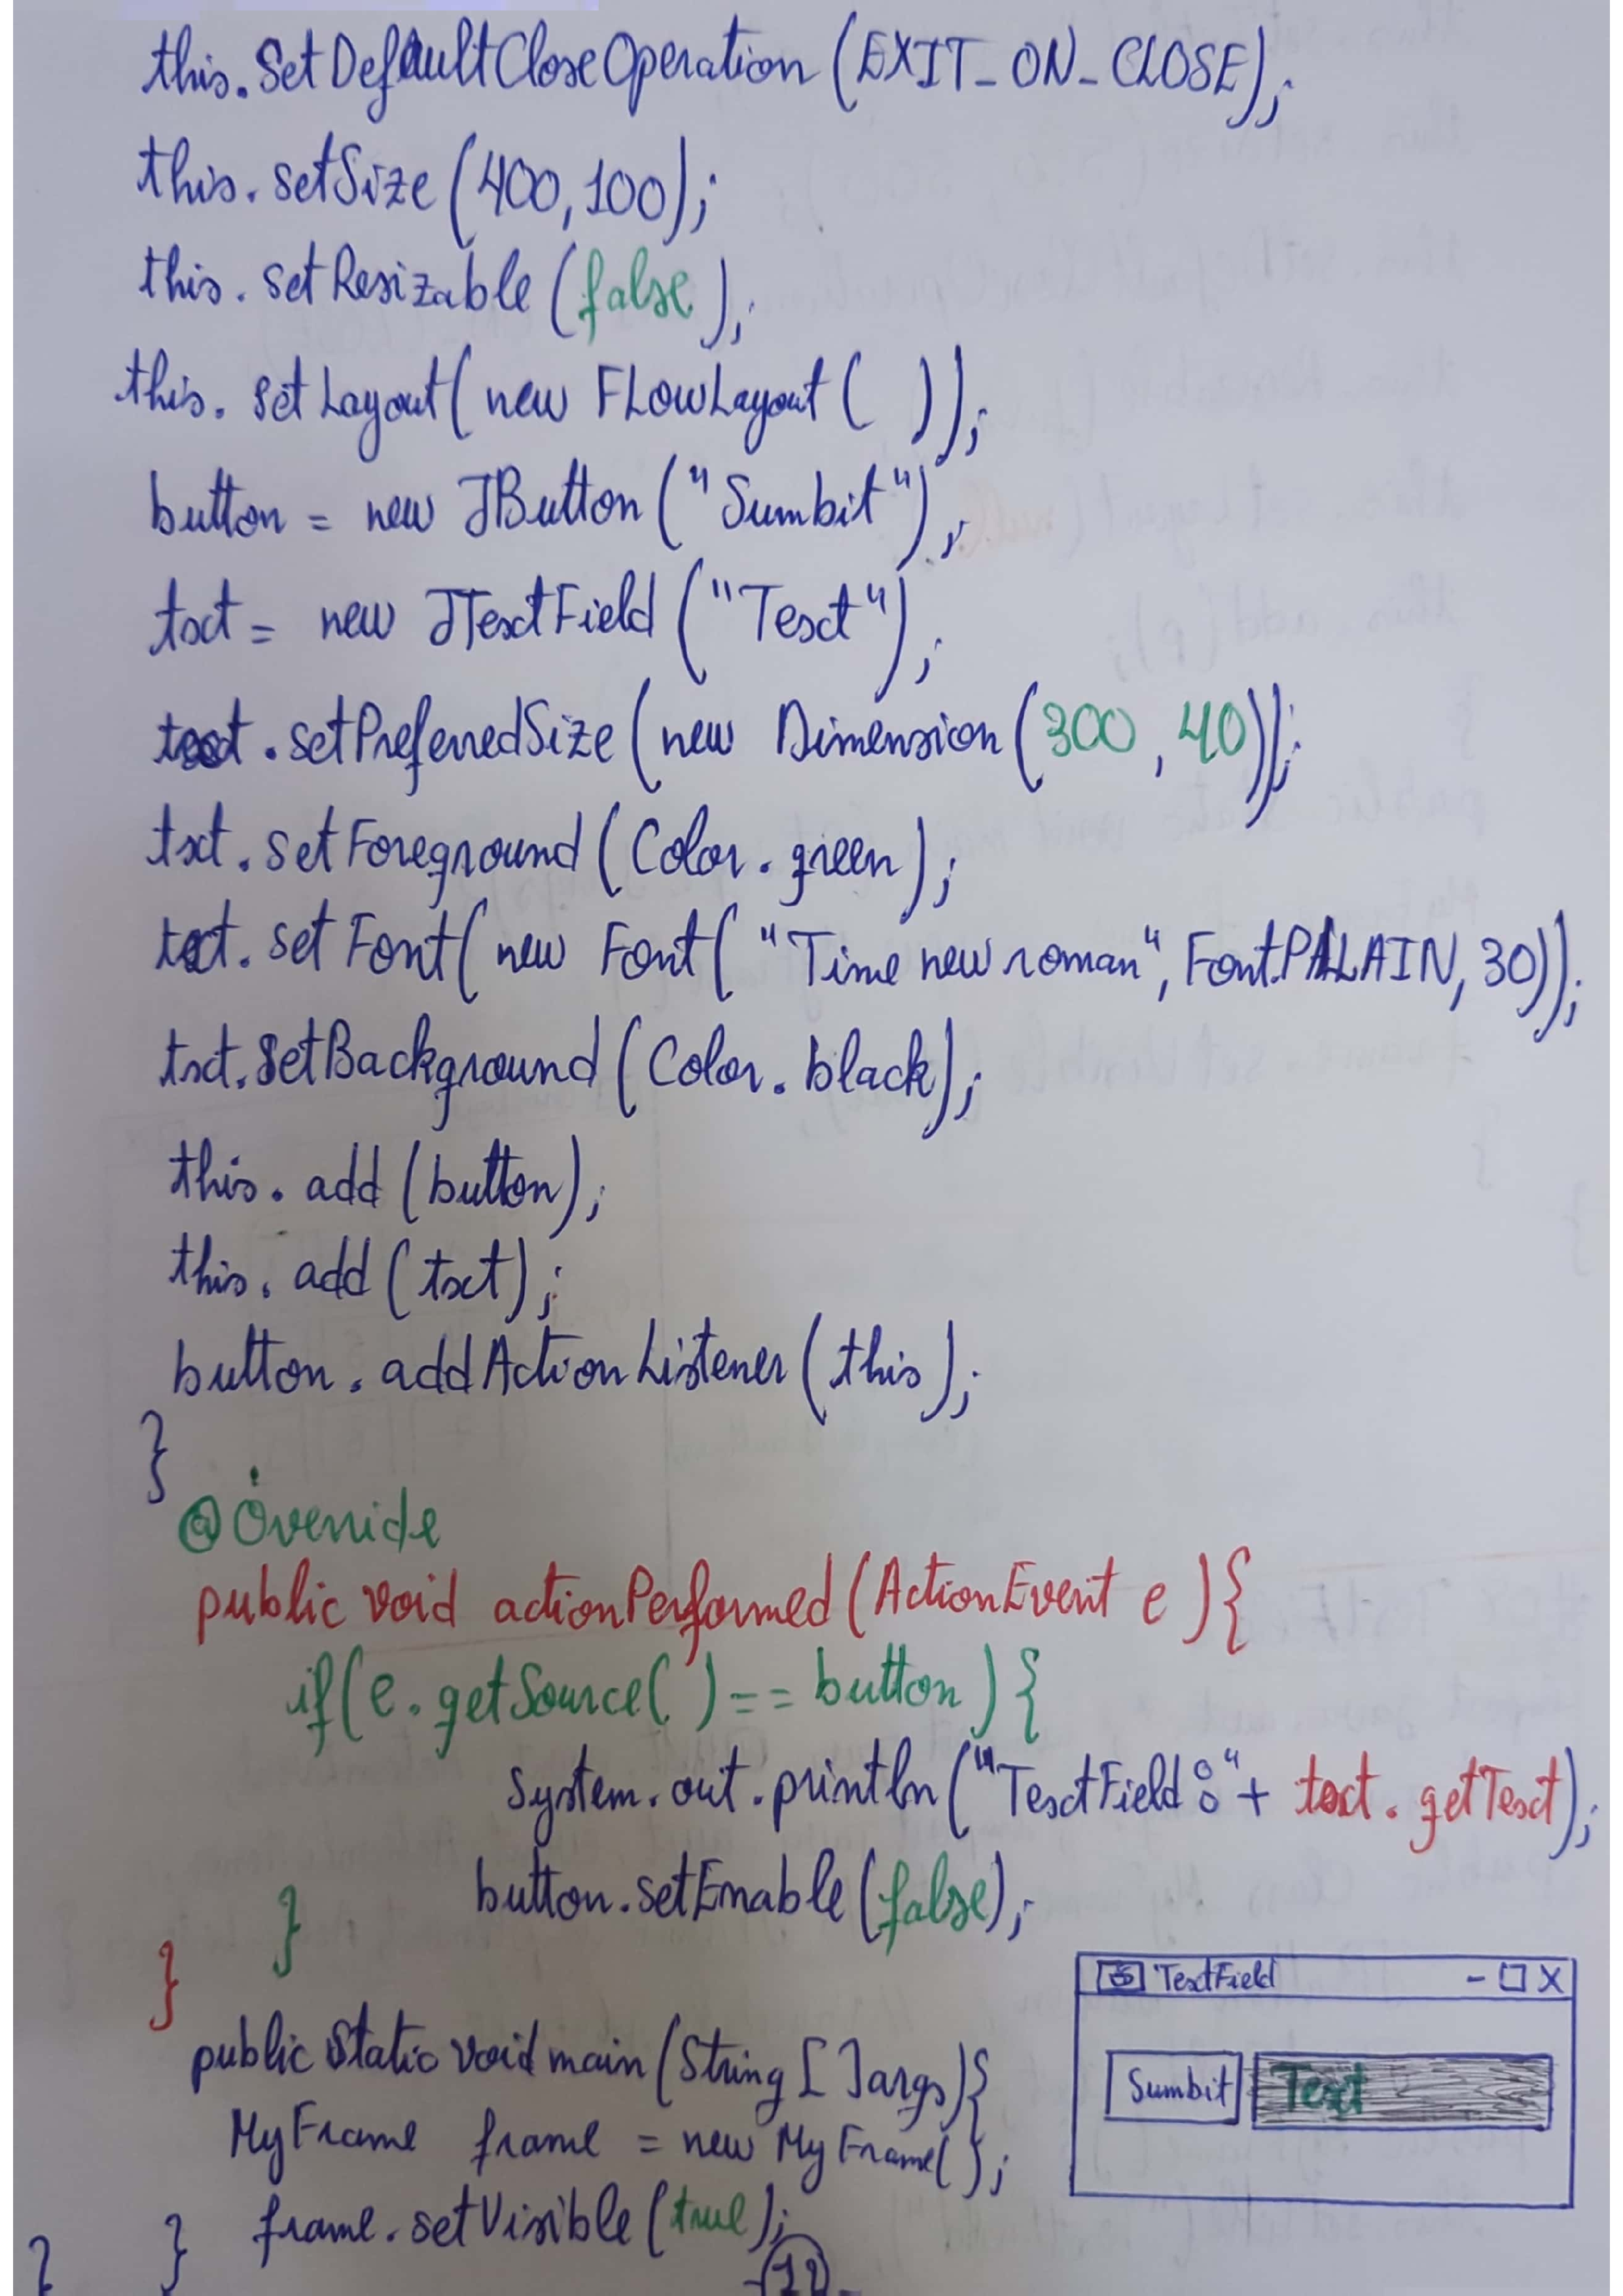 this.SetDefaultCloseOperation (EXIT_ON_CLOSE);
this.setSize (400,100);
this.setResizable (false);
this.setLayout( new FLowLayout ( ));
button = new JButton ("Sumbit");
txt = new JTextField ("Text");
text.setPreferredSize (new Dimension (300,40));
txt.setForeground (Color.green);
txt.set Font( new Font( "Time new roman", Font.PLAIN, 30));
txt.setBackground (Color.black);
this.add (button);
this.add (txt);
button.addActionListener (this);
}
@Override
public void actionPerformed (ActionEvent e ){
if(e.getSource( )== button ){
System.out.println ("TextField:"+ text.getText);
button.setEnable (false);
}
}
TextField - □ X
Sumbit Text
public static void main (String [ ]args){
MyFrame frame = new MyFrame( );
} frame.setVisible (true);
}